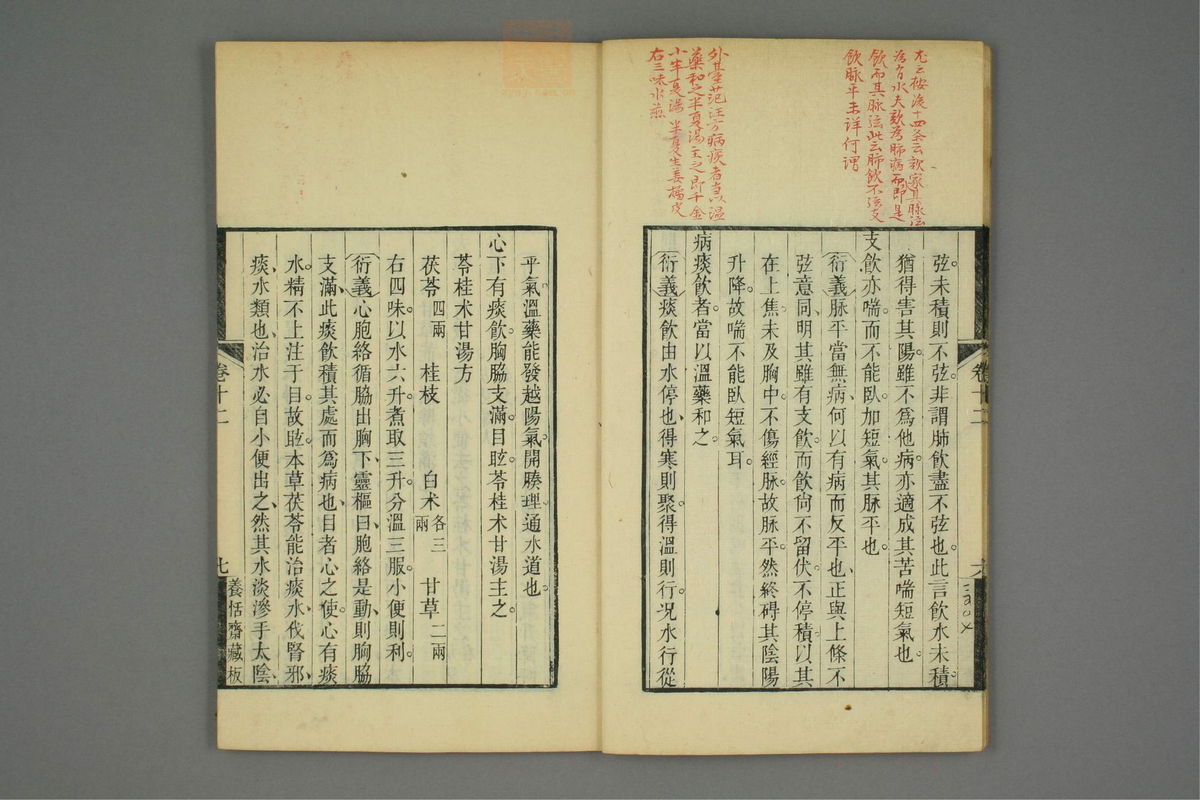 尤云按後十四条云欬家其脉弦
為有水夫欬為肺病而即是
飲而其脉弦此云肺飲不弦支
飲脉平未詳何謂
外臺范汪方病痰者當以温
藥和之半夏湯主之即千金
小半夏湯 半夏生姜橘皮
右三味水煎
弦。未積則不弦。非謂肺飲盡不弦也。此言飲水未積。
猶得害其陽。雖不爲他病。亦適成其苦喘短氣也。
支飲亦喘而不能臥。加短氣。其脉平也。
衍義脉平當無病。何以有病而反平也、正與上條不
弦意同、明其雖有支飲。而飲尙不留伏。不停積。以其
在上焦。未及胸中。不傷經脉。故脉平。然終碍其陰陽
升降。故喘不能臥短氣耳。
病痰飲者。當以溫藥和之。
衍義痰飲由水停也、得寒則聚。得溫則行。况水行從
卷十二
乎氣。溫藥能發越陽氣。開腠理。通水道也。
心下有痰飲。胸脇支滿。目眩。苓桂术甘湯主之。
苓桂术甘湯方
茯苓四兩 桂枝 白术各三兩 甘草二兩
右四味。以水六升。煮取三升。分溫三服。小便則利。
衍義心胞絡循脇出胸下、靈樞曰、胞絡是動、則胸脇
支滿、此痰飲積其處而爲病也、目者心之使。心有痰
水。精不上注于目。故眩。本草茯苓能治痰水、伐腎邪、
痰、水類也、治水必自小便出之、然其水淡滲手太陰、
卷十二
七
養恬齋藏板